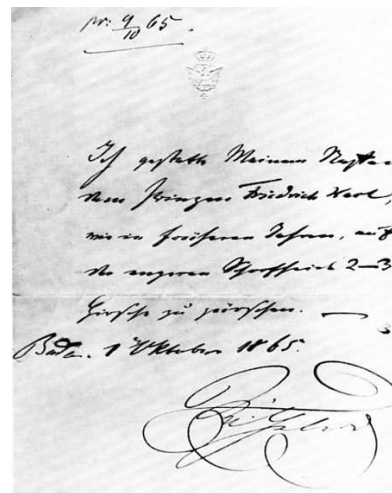 pr: 9/10 65.
Ich gestatte Meinem Neffen
dem Prinzen Friedrich Karl,
wie in früheren Jahren, auf
der engeren Schorfheide 2–3
Hirsche zu pürschen. —
1 Oktober 1865.